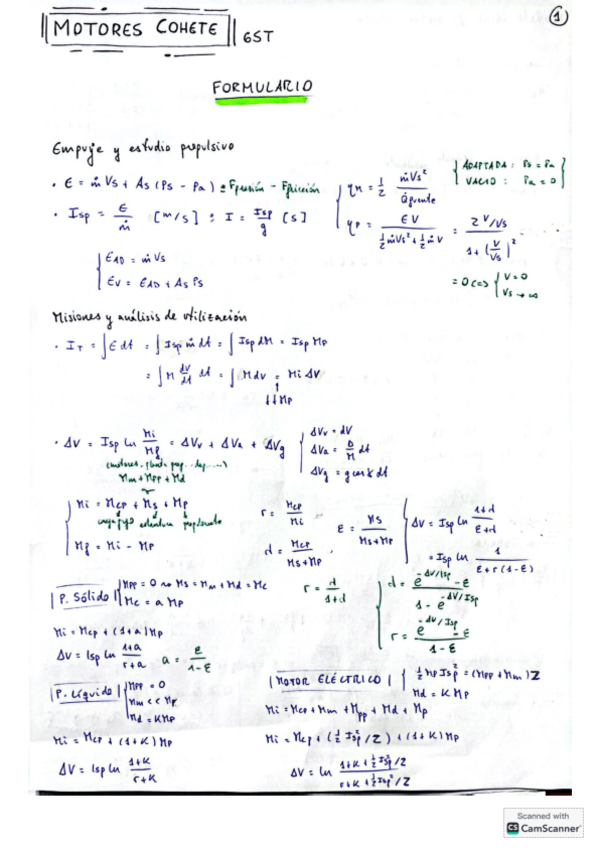 1
MOTORES COHETE 6ST
FORMULARIO
Empuje y estudio propulsivo
· E = ṁVs + As(Ps - Pa) = Fpresión - Ffricción
· Isp = E/ṁ [m/s] : I = Isp/g [s]
{ E_AD = ṁVs
Ev = E_AD + As Ps
ηM = 1/2 ṁVs²/Q̇puente
ηP = EV / (1/2 ṁVs² + 1/2 ṁV) = 2 V/Vs / (1 + (V/Vs)²)
= 0 <=> { V = 0
Vs → ∞
{ ADAPTADA : Ps = Pa
VACIO : Pa = 0 }
Misiones y análisis de utilización
· I_T = ∫E dt = ∫Isp ṁ dt = ∫Isp dM = Isp Mp
= ∫M dV/dt dt = ∫M dv = Mi ΔV
↓↓Mp
· ΔV = Isp ln Mi/Mf = ΔVv + ΔVa + ΔVg
{ ΔVv = dV
ΔVa = D/M dt
ΔVg = g cos γ dt
Mm + Mpp + Md
{ Mi = Mcp + Ms + Mp
estructura propulsante
Mf = Mi - Mp
r = Mcp/Mi
d = Mcp/(Ms + Mp)
ε = Ms/(Ms + Mp)
{ ΔV = Isp ln (1+d)/(ε+d)
= Isp ln 1/(ε + r(1-ε))
| P. Sólido | { Mpp = 0 → Ms = Mm + Md = Mc
Mc = a Mp
Mi = Mcp + (1+a)Mp
ΔV = Isp ln (1+a)/(r+a) a = ε/(1-ε)
r = d/(1+d)
{ d = (e^(-ΔV/Isp) - ε)/(1 - e^(-ΔV/Isp))
r = (e^(-ΔV/Isp) - ε)/(1 - ε)
| P. Líquido | { Mpp = 0
Mm << Mp
Md = K Mp
Mi = Mcp + (1+K)Mp
ΔV = Isp ln (1+K)/(r+K)
| MOTOR ELÉCTRICO | { 1/2 Mp Isp² = (Mpp + Mm)Z
Md = K Mp
Mi = Mcp + Mm + Mpp + Md + Mp
Mi = Mcp + (1/2 Isp²/Z) + (1+K)Mp
ΔV = ln (1+K+1/2 Isp²/Z)/(r+K+1/2 Isp²/Z)
Scanned with
CS CamScanner